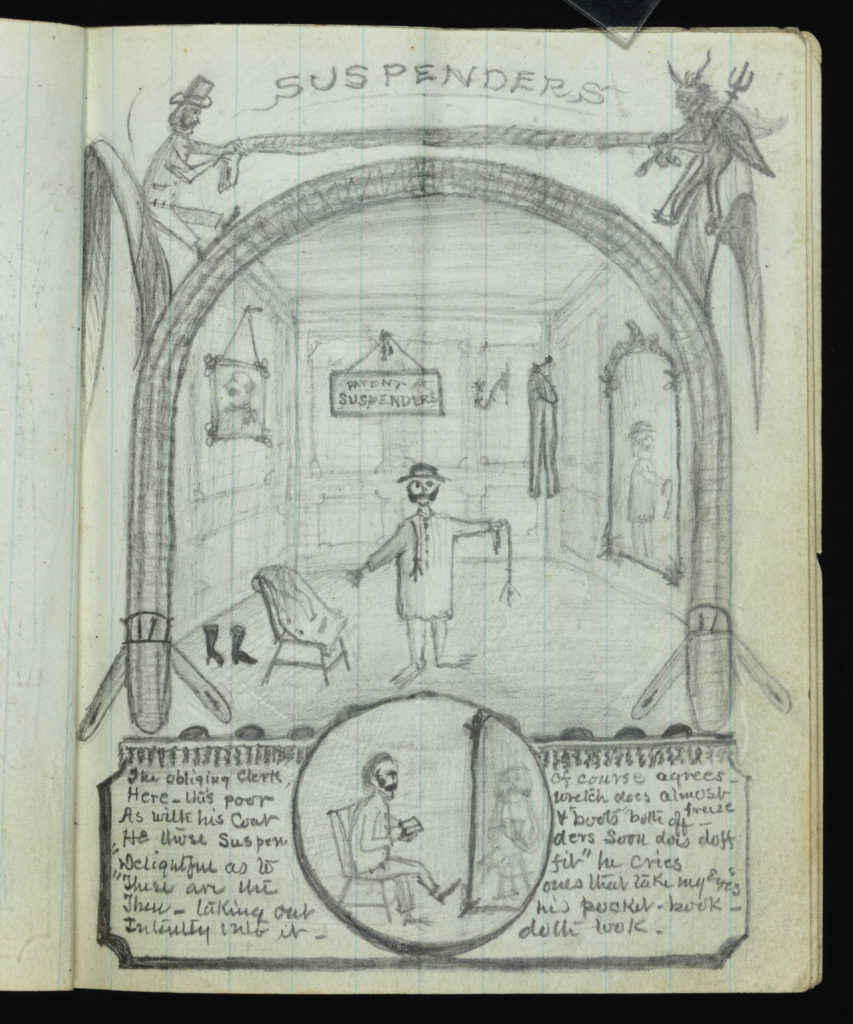 SUSPENDERS
PATENT
SUSPENDERS
The obliging Clerk, of course agrees –
Here – this poor wretch does almost freeze
As with his Coat & boots both off –
He those Suspen ders Soon does doff
"Delightful as to fit" he cries
"These are the ones that take my eyes"
Then – taking out his pocket-book –
Intently into it – doth look.